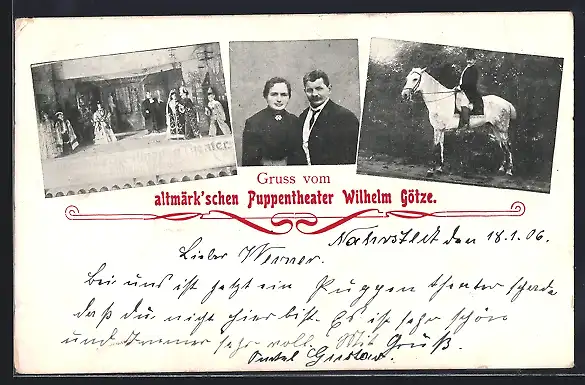 Gruss vom
altmärk'schen Puppentheater Wilhelm Götze.
Nahrstedt den 18.1.06.
Lieber Werner.
bei uns ist jetzt ein Puppen theater schade
daß du nicht hier bist. Es ist sehr schön
und immer sehr voll. Mit Gruß.
Onkel Gustav.